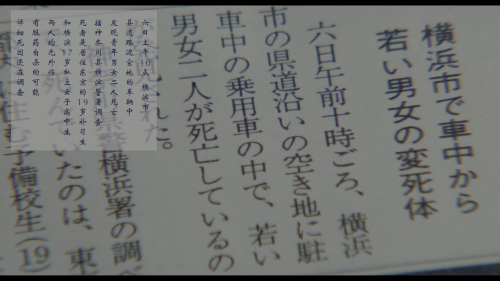 横浜市で車中から
若い男女の変死体
六日午前十時ごろ、横浜
市の県道沿いの空き地に駐
車中の乗用車の中で、若い
男女二人が死亡しているの
れた。
横浜署の調べ
いたのは、東
に住む予備校生(19)
六日上午10点 横滨市
县道路边空地的车辆中
发现青年男女二人死亡
据神奈川县横滨警署调查
死者是居住东京的19岁补习生
和横滨17岁私立女子高中生
两人均无外伤
有服药自杀的可能
详细死因还在调查